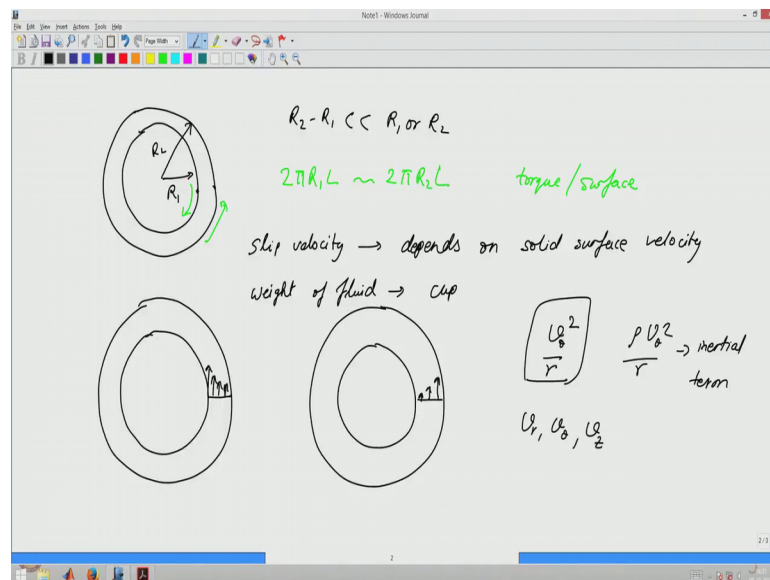 Note1 - Windows Journal
File Edit View Insert Actions Tools Help
Page Width
B I
R₂
R₁
R₂ - R₁ << R₁ or R₂
2πR₁L ~ 2πR₂L torque/surface
slip velocity → depends on solid surface velocity
weight of fluid → cup
υ_θ²/r ρυ_θ²/r → inertial term
υ_r, υ_θ, υ_z
2/3
2